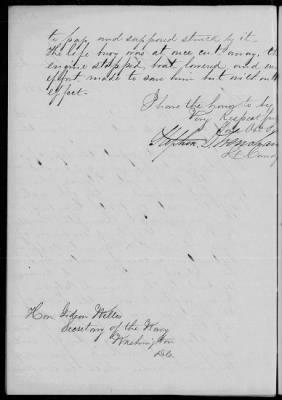 to pap, and supposed struck by it.
The life buoy was at once cut away, the
engine stopped boat lowered and
effort made to save him but without
effect.
I have the honor to be
Very Respectfully
Stephen
Lt Comdg
Hon Gideon Welles
Secretary of the Navy
Washington